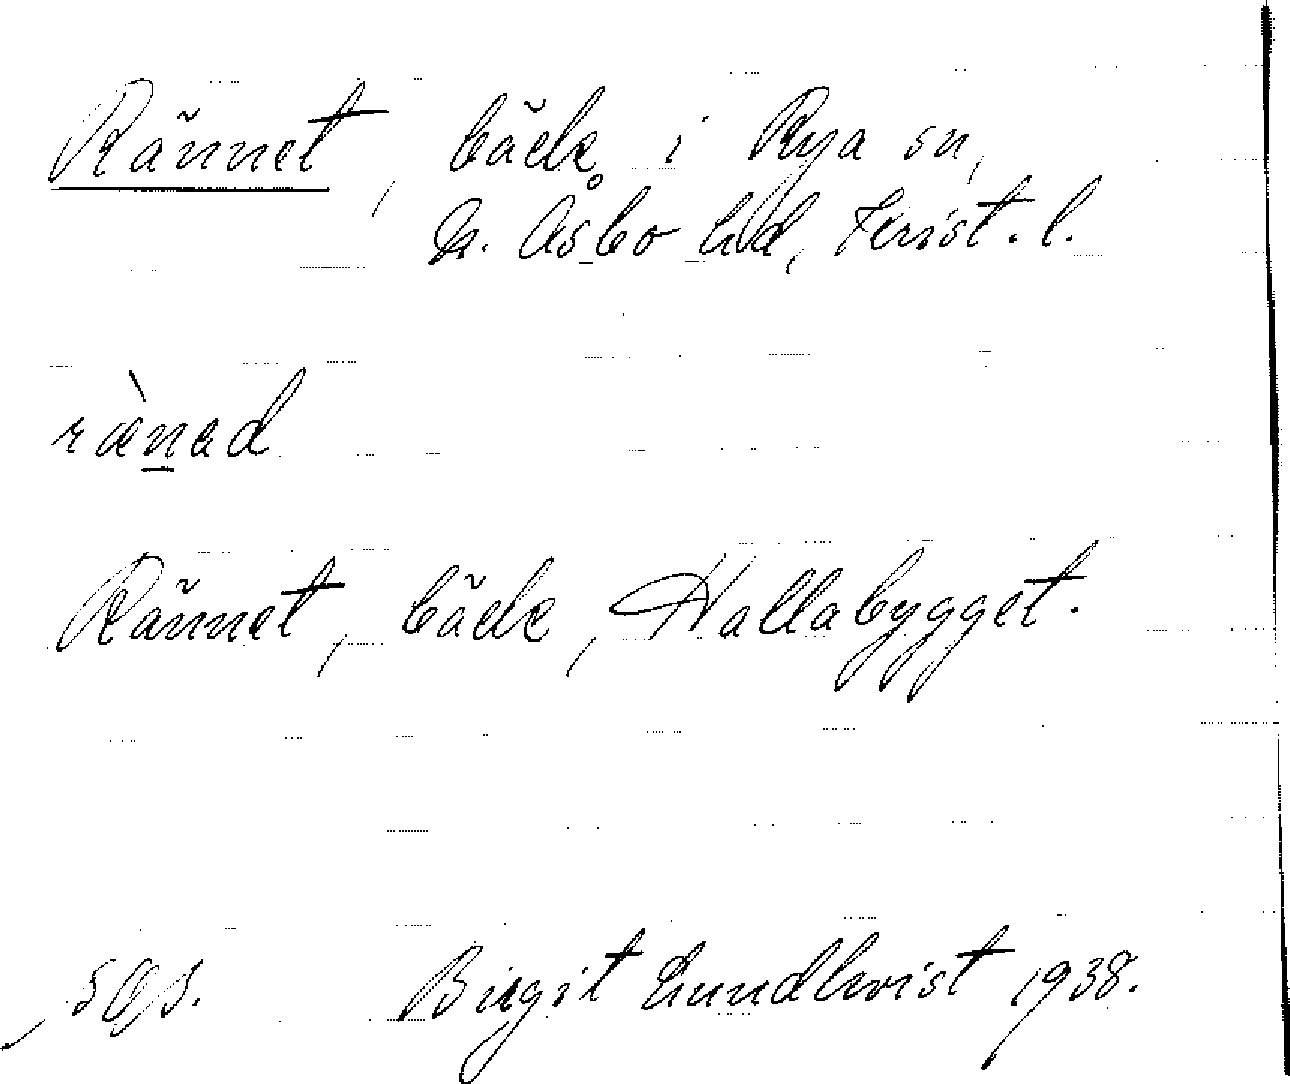 Rännet, bäck i Rya sn,
N. Åsbo hd, Krist. l.
rænəd
Rännet, bäck, Hallabygget.
Birgit Lundkvist 1938.